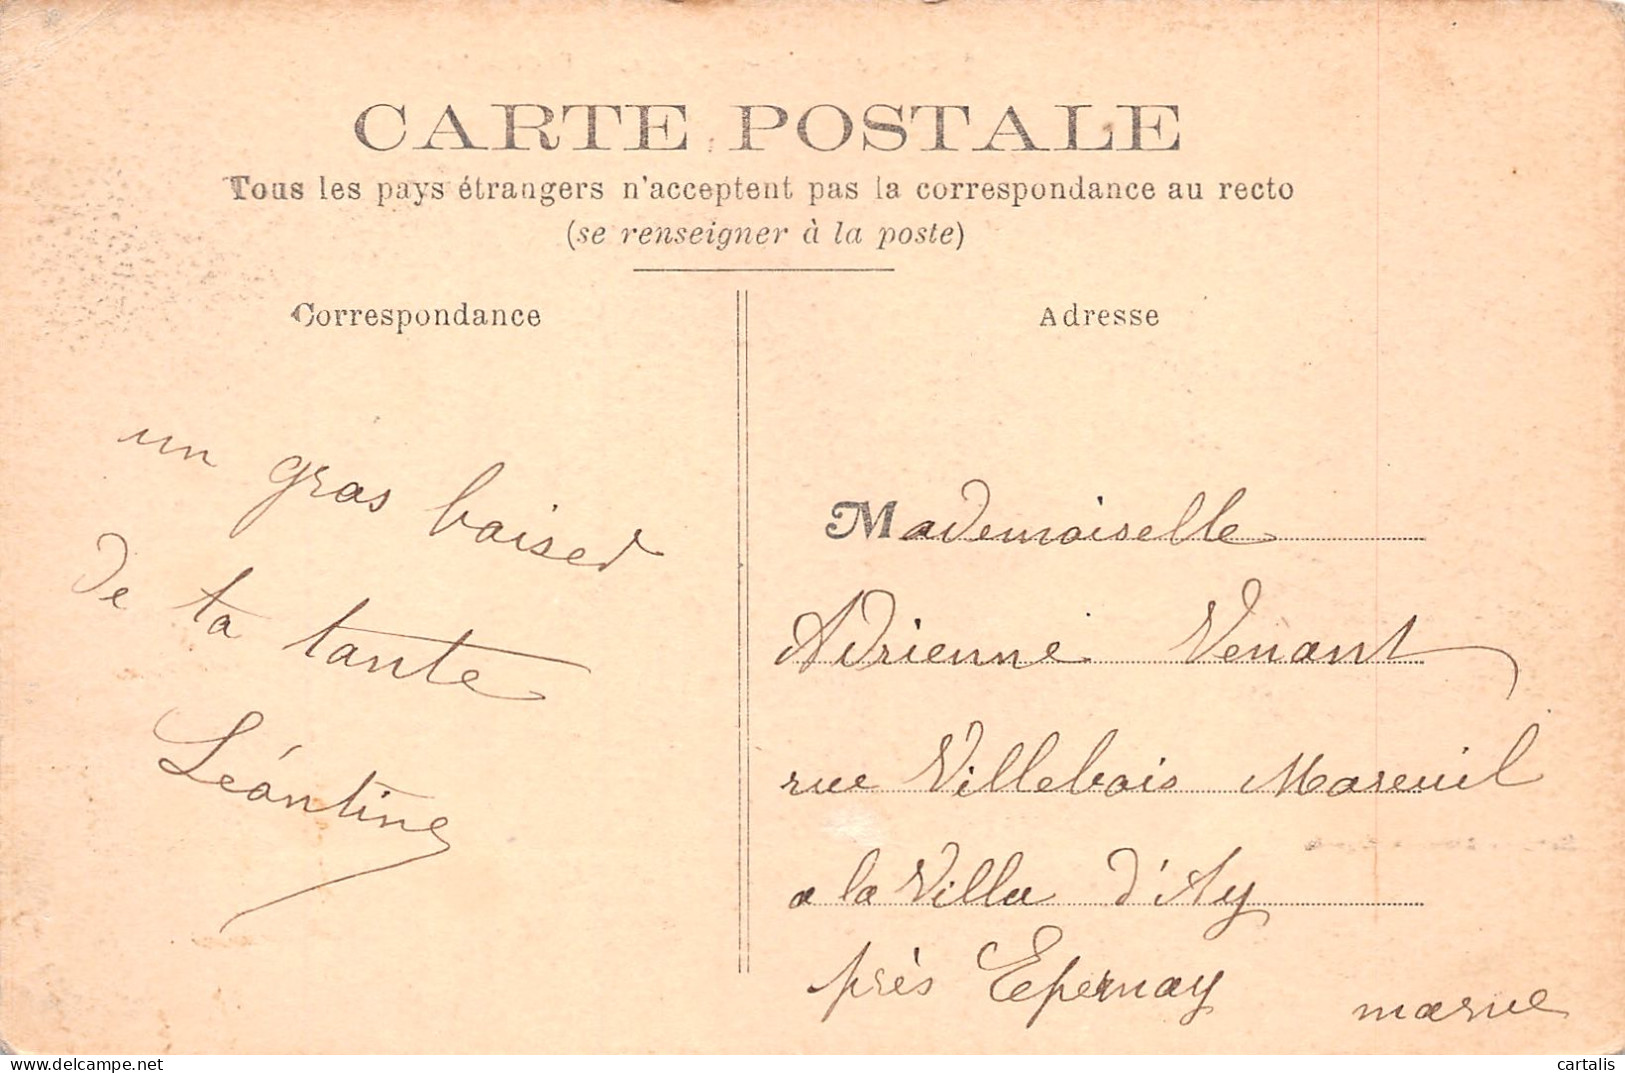 CARTE POSTALE
Tous les pays étrangers n'acceptent pas la correspondance au recto
(se renseigner à la poste)
Correspondance
un gros baiser
de ta tante
Léontine
Adresse
Mademoiselle
Adrienne Venant
rue Villebois Mareuil
a la Villa d'Ay
près Epernay
marne
cartalis